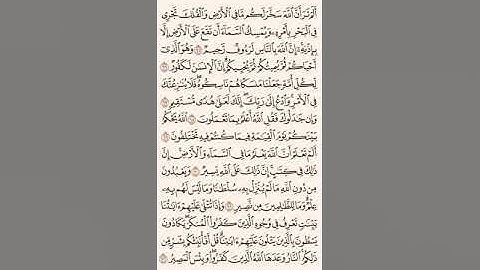 أَلَمْ تَرَ أَنَّ ٱللَّهَ سَخَّرَ لَكُم مَّا فِى ٱلْأَرْضِ وَٱلْفُلْكَ تَجْرِى
فِى ٱلْبَحْرِ بِأَمْرِهِۦ وَيُمْسِكُ ٱلسَّمَآءَ أَن تَقَعَ عَلَى ٱلْأَرْضِ إِلَّا
بِإِذْنِهِۦٓ إِنَّ ٱللَّهَ بِٱلنَّاسِ لَرَءُوفٌ رَّحِيمٌ ٦٥ وَهُوَ ٱلَّذِىٓ
أَحْيَاكُمْ ثُمَّ يُمِيتُكُمْ ثُمَّ يُحْيِيكُمْ إِنَّ ٱلْإِنسَٰنَ لَكَفُورٌ ٦٦
لِّكُلِّ أُمَّةٍ جَعَلْنَا مَنسَكًا هُمْ نَاسِكُوهُ فَلَا يُنَٰزِعُنَّكَ
فِى ٱلْأَمْرِ وَٱدْعُ إِلَىٰ رَبِّكَ إِنَّكَ لَعَلَىٰ هُدًى مُّسْتَقِيمٍ ٦٧
وَإِن جَٰدَلُوكَ فَقُلِ ٱللَّهُ أَعْلَمُ بِمَا تَعْمَلُونَ ٦٨ ٱللَّهُ يَحْكُمُ
بَيْنَكُمْ يَوْمَ ٱلْقِيَٰمَةِ فِيمَا كُنتُمْ فِيهِ تَخْتَلِفُونَ ٦٩
أَلَمْ تَعْلَمْ أَنَّ ٱللَّهَ يَعْلَمُ مَا فِى ٱلسَّمَآءِ وَٱلْأَرْضِ إِنَّ
ذَٰلِكَ فِى كِتَٰبٍ إِنَّ ذَٰلِكَ عَلَى ٱللَّهِ يَسِيرٌ ٧٠ وَيَعْبُدُونَ
مِن دُونِ ٱللَّهِ مَا لَمْ يُنَزِّلْ بِهِۦ سُلْطَٰنًا وَمَا لَيْسَ لَهُم بِهِۦ
عِلْمٌ وَمَا لِلظَّٰلِمِينَ مِن نَّصِيرٍ ٧١ وَإِذَا تُتْلَىٰ عَلَيْهِمْ ءَايَٰتُنَا
بَيِّنَٰتٍ تَعْرِفُ فِى وُجُوهِ ٱلَّذِينَ كَفَرُوا۟ ٱلْمُنكَرَ يَكَادُونَ
يَسْطُونَ بِٱلَّذِينَ يَتْلُونَ عَلَيْهِمْ ءَايَٰتِنَا قُلْ أَفَأُنَبِّئُكُم بِشَرٍّ مِّن
ذَٰلِكُمُ ٱلنَّارُ وَعَدَهَا ٱللَّهُ ٱلَّذِينَ كَفَرُوا۟ وَبِئْسَ ٱلْمَصِيرُ ٧٢